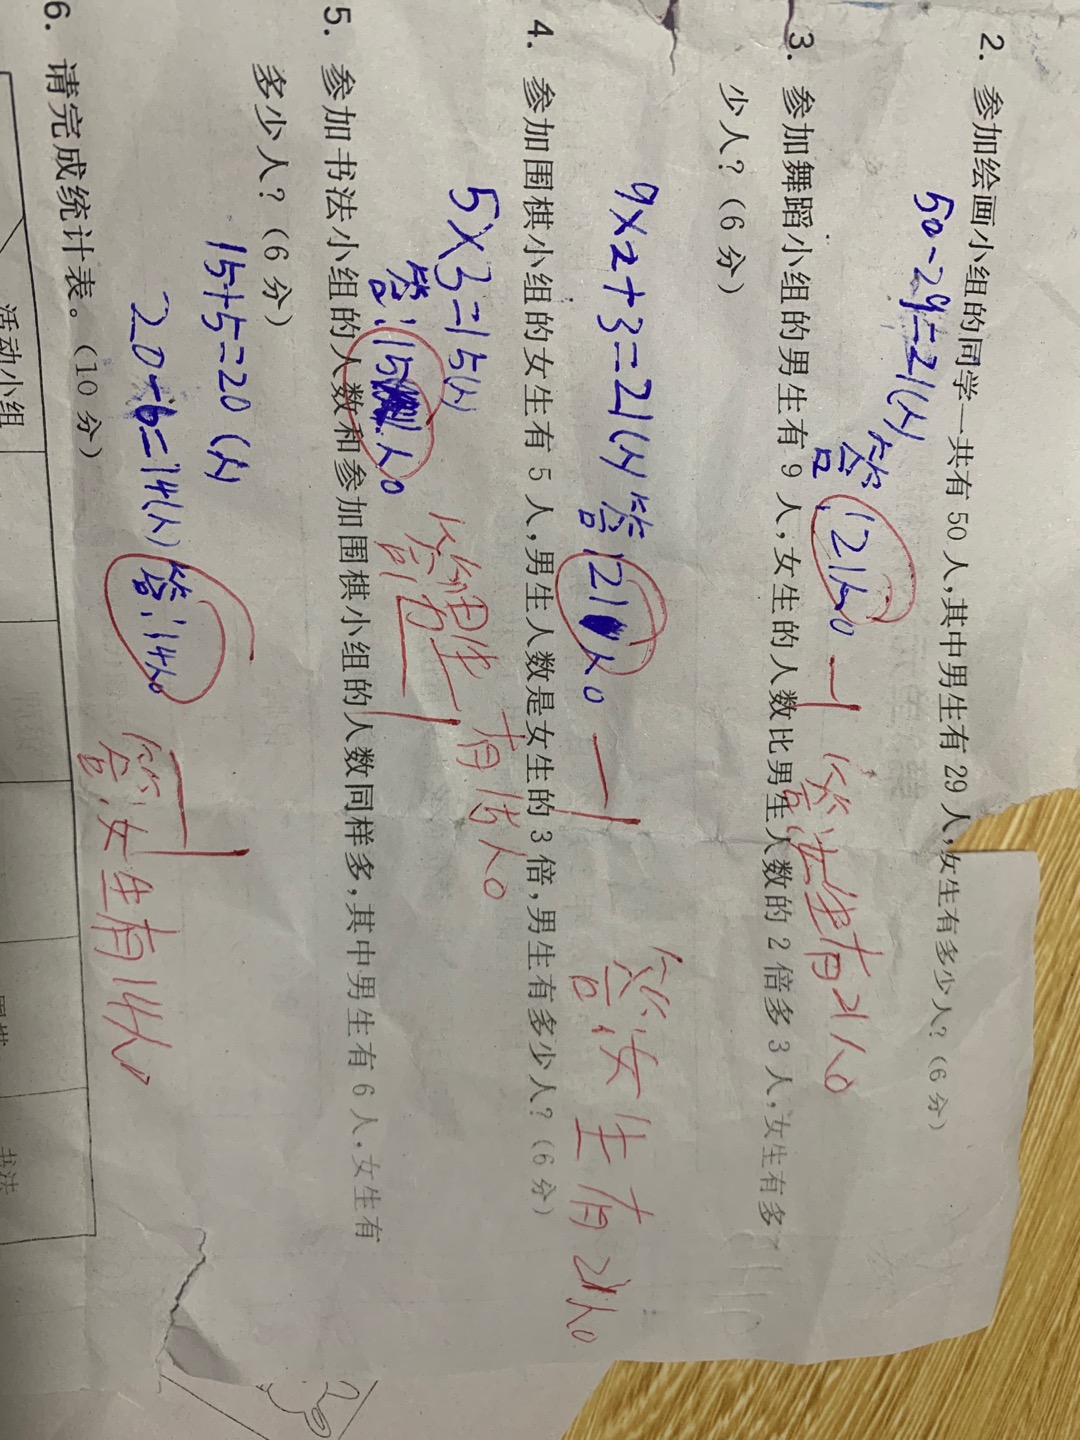 2. 参加绘画小组的同学一共有 50 人,其中男生有 29 人,女生有多少人?(6 分)
50-29=21(人) 答:21人。
答:女生有21人。
3. 参加舞蹈小组的男生有 9 人,女生的人数比男生人数的 2 倍多 3 人,女生有多
少人?(6 分)
9×2+3=21(人) 答:21人。
答:女生有21人。
4. 参加围棋小组的女生有 5 人,男生人数是女生的 3 倍,男生有多少人?(6 分)
5×3=15(人)
答:15人。
答:男生有15人。
5. 参加书法小组的人数和参加围棋小组的人数同样多,其中男生有 6 人,女生有
多少人?(6 分)
15+5=20(人)
20-6=14(人) 答:14人。
答:女生有14人。
6. 请完成统计表。(10 分)
活动小组
书法